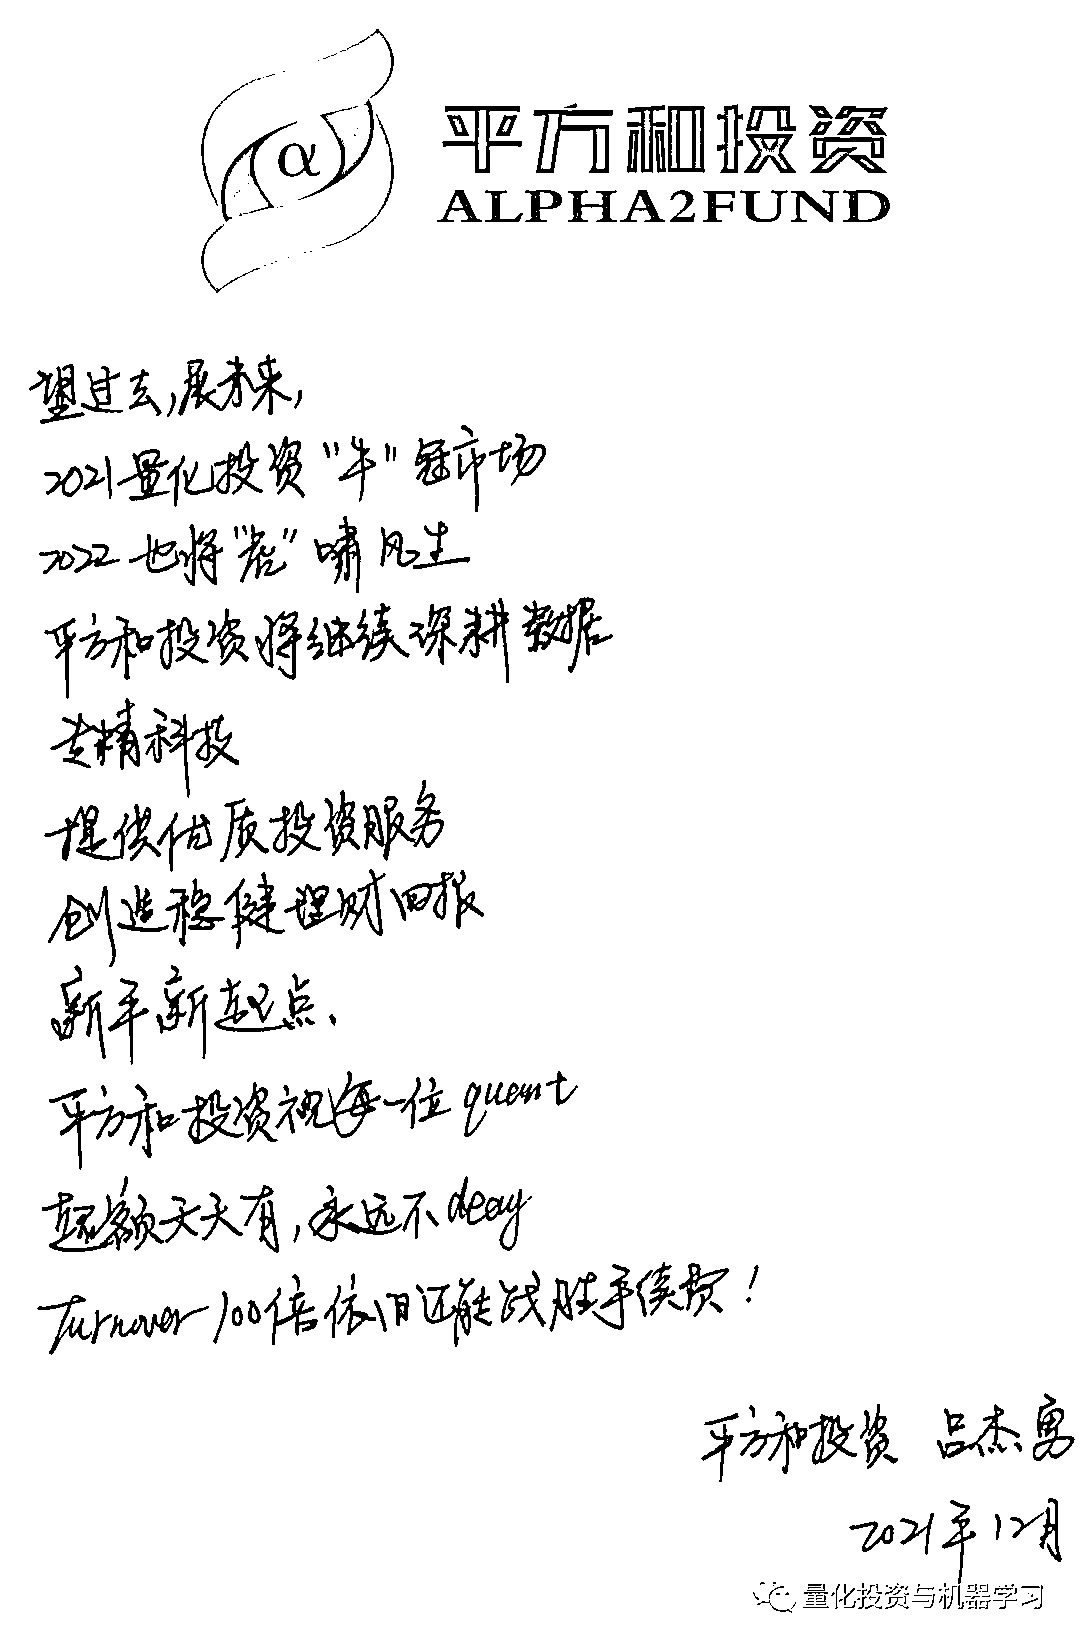 平方和投资
ALPHA2FUND
望过去,展未来,
2021量化投资"牛"冠市场
2022也将"虎"啸风生
平方和投资将继续深耕数据
专精科技
提供优质投资服务
创造稳健理财回报
新年新起点、
平方和投资祝每一位quant
超额天天有,永远不decay
Turnover 100倍依旧还能战胜手续费!
平方和投资 吕杰勇
2021年12月
量化投资与机器学习
α